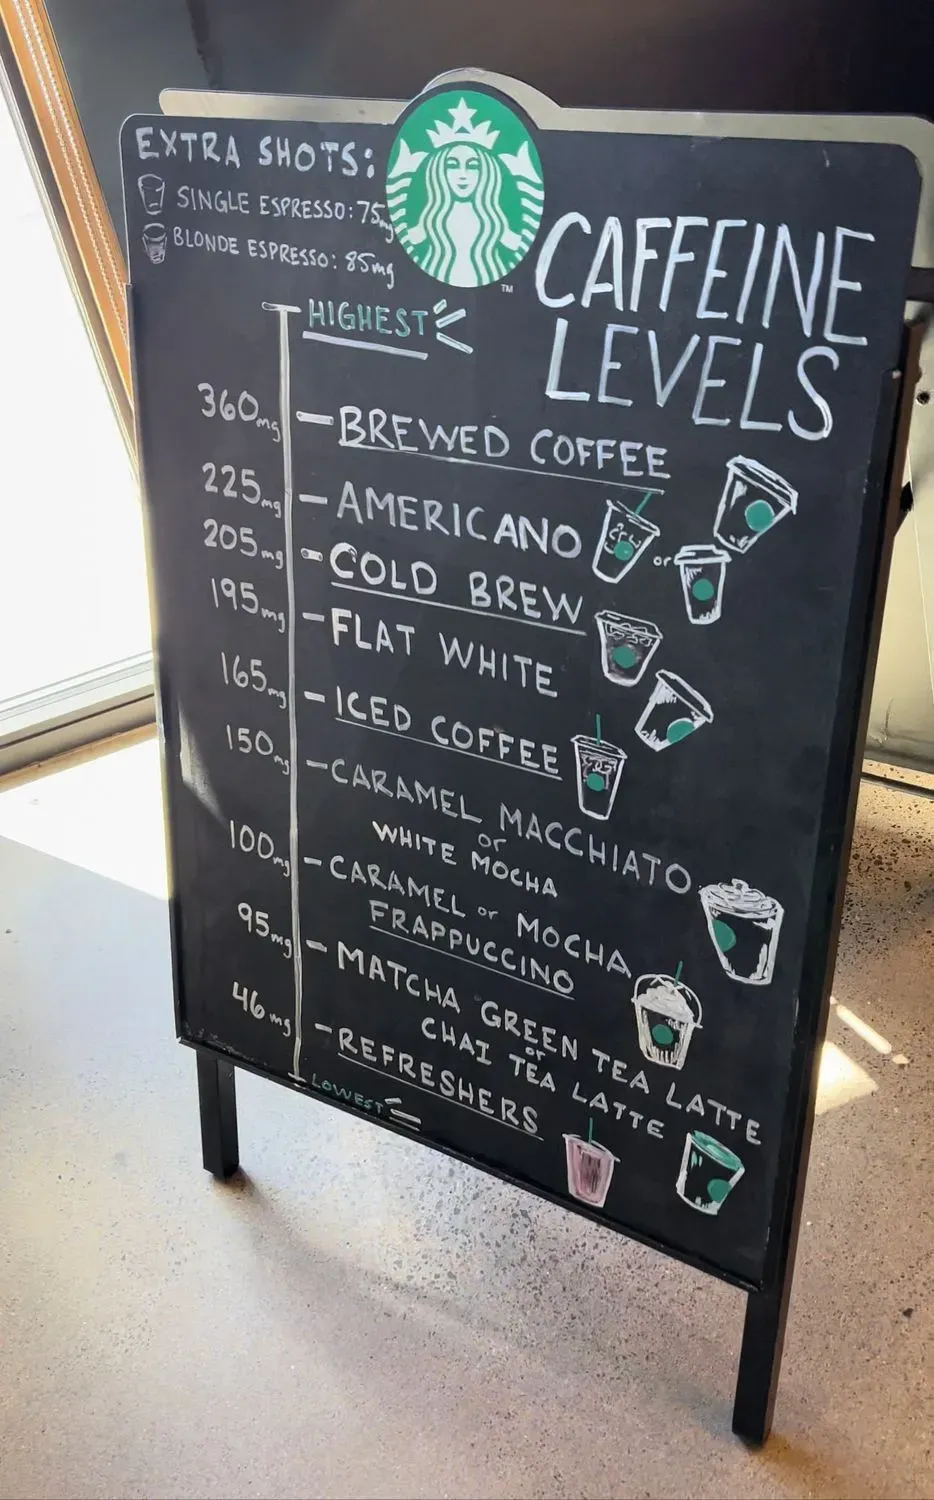 EXTRA SHOTS:
SINGLE ESPRESSO: 75mg
BLONDE ESPRESSO: 85mg
TM
CAFFEINE
LEVELS
HIGHEST
360mg BREWED COFFEE
225mg AMERICANO
or
205mg COLD BREW
195mg FLAT WHITE
165mg ICED COFFEE
150mg CARAMEL MACCHIATO
or
WHITE MOCHA
100mg CARAMEL or MOCHA
FRAPPUCCINO
95mg MATCHA GREEN TEA LATTE
or
CHAI TEA LATTE
46mg REFRESHERS
LOWEST